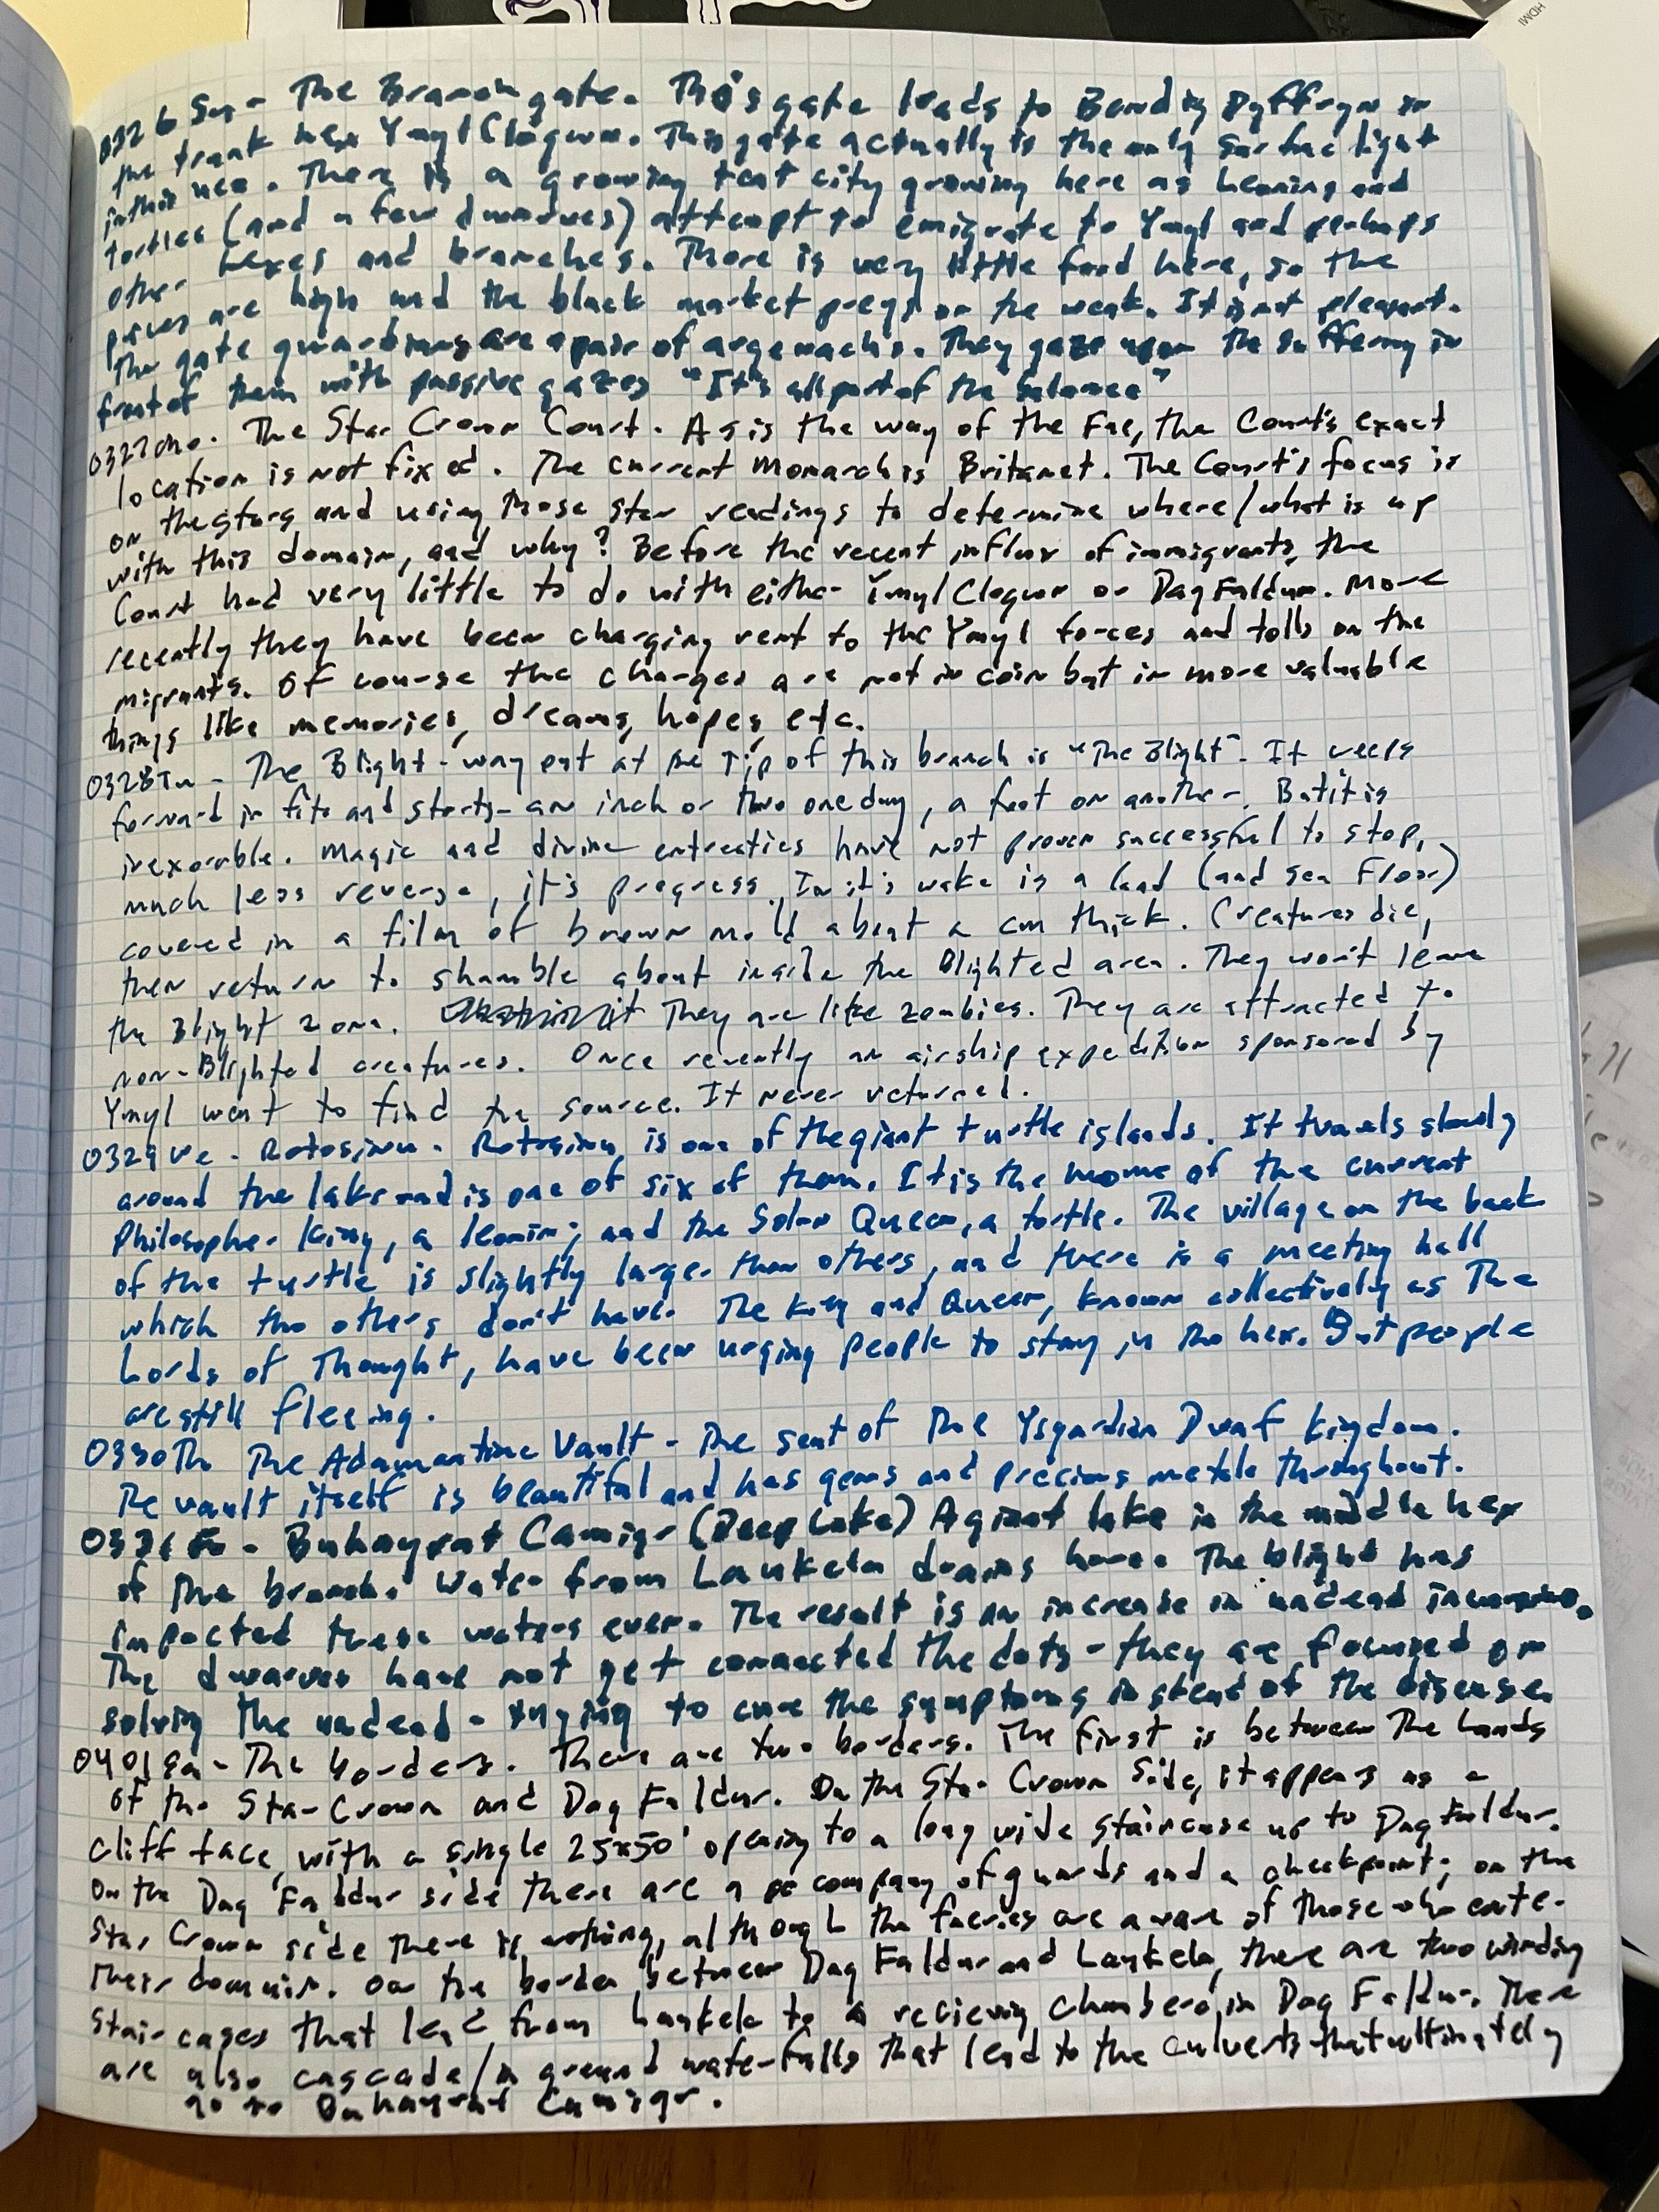 0326 Su - The Branch gate. This gate leads to Bendig Dyffryn in
the trunk hex Ymyl Clogwn. This gate actually is the only surface light
in this hex. There is a growing tent city growing here as leonins and
tortles (and a few dwarves) attempt to emigrate to Ymyl and perhaps
other hexes and branches. There is very little food here, so the
prices are high and the black market preys on the weak. It is not pleasant.
The gate guardians are a pair of argenachs. They gaze upon the suffering in
front of them with passive gazes "It's all part of the balance"
0327 Mo. The Star Crown Court. As is the way of the Fae, the Court's exact
location is not fixed. The current Monarch is Britanet. The Court's focus is
on the stars and using those star readings to determine where/what is up
with this domain, and why? Before the recent influx of immigrants, the
Court had very little to do with either Ymyl Clogwn or Dag Faldur. More
recently they have been charging rent to the Ymyl forces and tolls on the
migrants. Of course the charges are not in coin but in more valuable
things like memories, dreams, hopes, etc.
0328 Tu - The Blight - way out at the Tip of this branch is "The Blight". It creeps
forward in fits and starts - an inch or two one day, a foot on another. But it is
inexorable. Magic and divine entreaties have not proven successful to stop,
much less reverse, it's progress. In it's wake is a land (and sea Floor)
covered in a film of brown mold about a cm thick. Creatures die,
then return to shamble about inside the Blighted area. They won't leave
the Blight zone. They are like zombies. They are attracted to
non-Blighted creatures. Once recently an airship expedition sponsored by
Ymyl went to find the source. It never returned.
0329 We. Rotosinu. Rotosinu is one of the giant turtle islands. It travels slowly
around the lake and is one of six of them. It is the home of the current
Philosopher King, a leonin; and the Solar Queen, a tortle. The village on the back
of the turtle is slightly larger than others, and there is a meeting hall
which the others don't have. The King and Queen, known collectively as The
Lords of Thought, have been urging people to stay in the hex. But people
are still fleeing.
0330 Th The Adamantine Vault - The seat of the Ysgardian Dwarf Kingdom.
The vault itself is beautiful and has gems and precious metals throughout.
0331 Fr - Buhayrat Camiqr (Deep Lake) A giant lake in the middle hex
of the branch. Water from Lankela drains here. The blight has
impacted these waters even. The result is an increase in undead
The dwarves have not yet connected the dots - they are focused on
solving the undead - trying to cure the symptoms instead of the disease.
0401 Sa - The borders. There are two borders. The first is between The Lands
of the Star Crown and Dag Faldur. On the Star Crown side, it appears as a
cliff face, with a single 25x50' opening to a long wide staircase up to Dag Faldur.
On the Dag Faldur side there are a company of guards and a checkpoint; on the
Star Crown side there is nothing, although the faeries are aware of those who enter
their domain. On the border between Dag Faldur and Lankela, there are two winding
staircases that lead from Lankela to a recieving chambers in Dag Faldur. There
are also cascade/in ground waterfalls that lead to the culverts that ultimately
go to Buhayrat Camiqr.